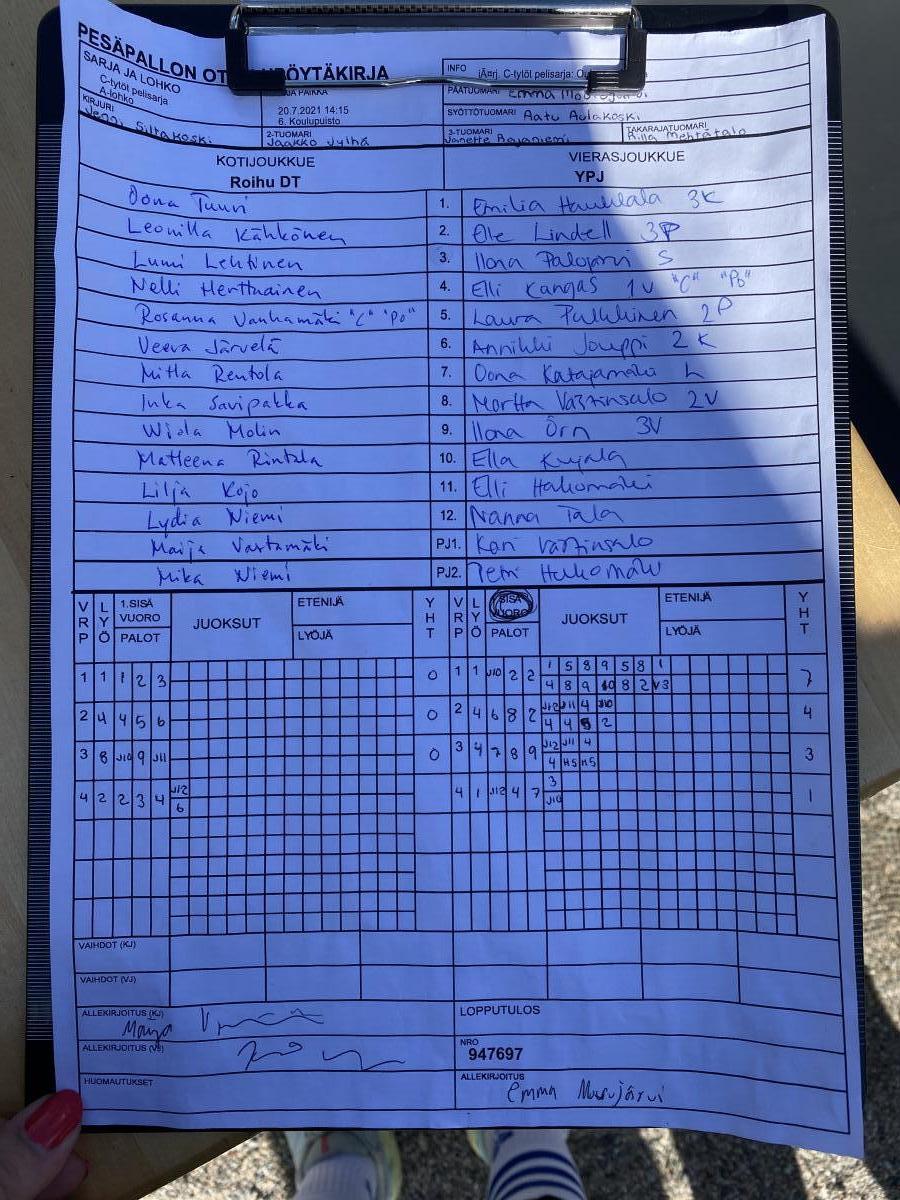 PESÄPALLON OT YTÄKIRJA
SARJA JA LOHKO
C-tytöt pelisarja
A-lohko
INFO jÄ¤rj. C-tytöt pelisarja: Ou
PÄÄTUOMARI Emma
JA PAIKKA
20.7.2021 14:15
6. Koulupuisto
SYÖTTÖTUOMARI Aatu Aulakoski
KIRJURI
Siltakoski
2-TUOMARI
Jaakko Jylhä
3-TUOMARI
Janette
TAKARAJATUOMARI
Milla Mehtätalo
KOTIJOUKKUE VIERASJOUKKUE
Roihu DT YPJ
Oona Tuuri 1. Emilia Haukkala 3K
Leonilla Kähkönen 2. Ole Lindell 3P
Lumi Lehtinen 3. Ilona S
Nelli Herttuainen 4. Elli Kangas 1V "C" "Po"
Rosanna Vanhamäki "C" "Po" 5. Laura Pulkkinen 2P
Veera Järvelä 6. Annikki Jouppi 2K
Mitla Rentola 7. Oona Katajamäki L
Inka Savipakka 8. Martta Västinsalo 2V
Wiola Molin 9. Ilona Örn 3V
Matleena Rintala 10. Ella Kujala
Lilja Kojo 11. Elli Hakomäki
Lydia Niemi 12. Nanna Tala
Maija Vastamäki PJ1. Kari Västinsalo
Mika Niemi PJ2. Petri Hakomäki
VRP LYÖ 1.SISÄ VUORO PALOT JUOKSUT ETENIJÄ LYÖJÄ YHT VRP LYÖ SISÄ VUORO PALOT JUOKSUT ETENIJÄ LYÖJÄ YHT
1 1 1 2 3 0 1 1 J10 2 2 1 5 8 9 5 8 1 7
4 8 9 10 8 2 V3
2 4 4 5 6 0 2 4 6 8 2 J12 J11 4 J10 4
4 4 5 2
3 8 J10 9 J11 0 3 4 7 8 9 J12 J11 4 3
4 H5 H5
4 2 2 3 4 J12 4 1 J12 4 7 3 1
6 J10
VAIHDOT (KJ)
VAIHDOT (VJ)
ALLEKIRJOITUS (KJ) LOPPUTULOS
Maija
ALLEKIRJOITUS (VJ) NRO
947697
HUOMAUTUKSET ALLEKIRJOITUS
Emma